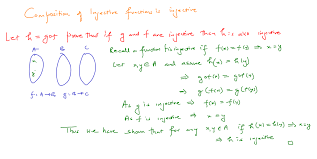 Composition of injective functions is injective
Let h = gof prove that if g and f are injective then h is also injective
A B C
Recall a function f is injective if f(x) = f(y) ⇒ x = y
x
y
Let x, y ∈ A and assume h(x) = h(y)
⇒ gof(x) = gof(y)
f: A→B g: B→C
⇒ g(f(x)) = g(f(y))
As g is injective ⇒ f(x) = f(y)
As f is injective ⇒ x = y
Thus we have shown that for any x, y ∈ A if h(x) = h(y) ⇒ x = y
⇒ h is injective